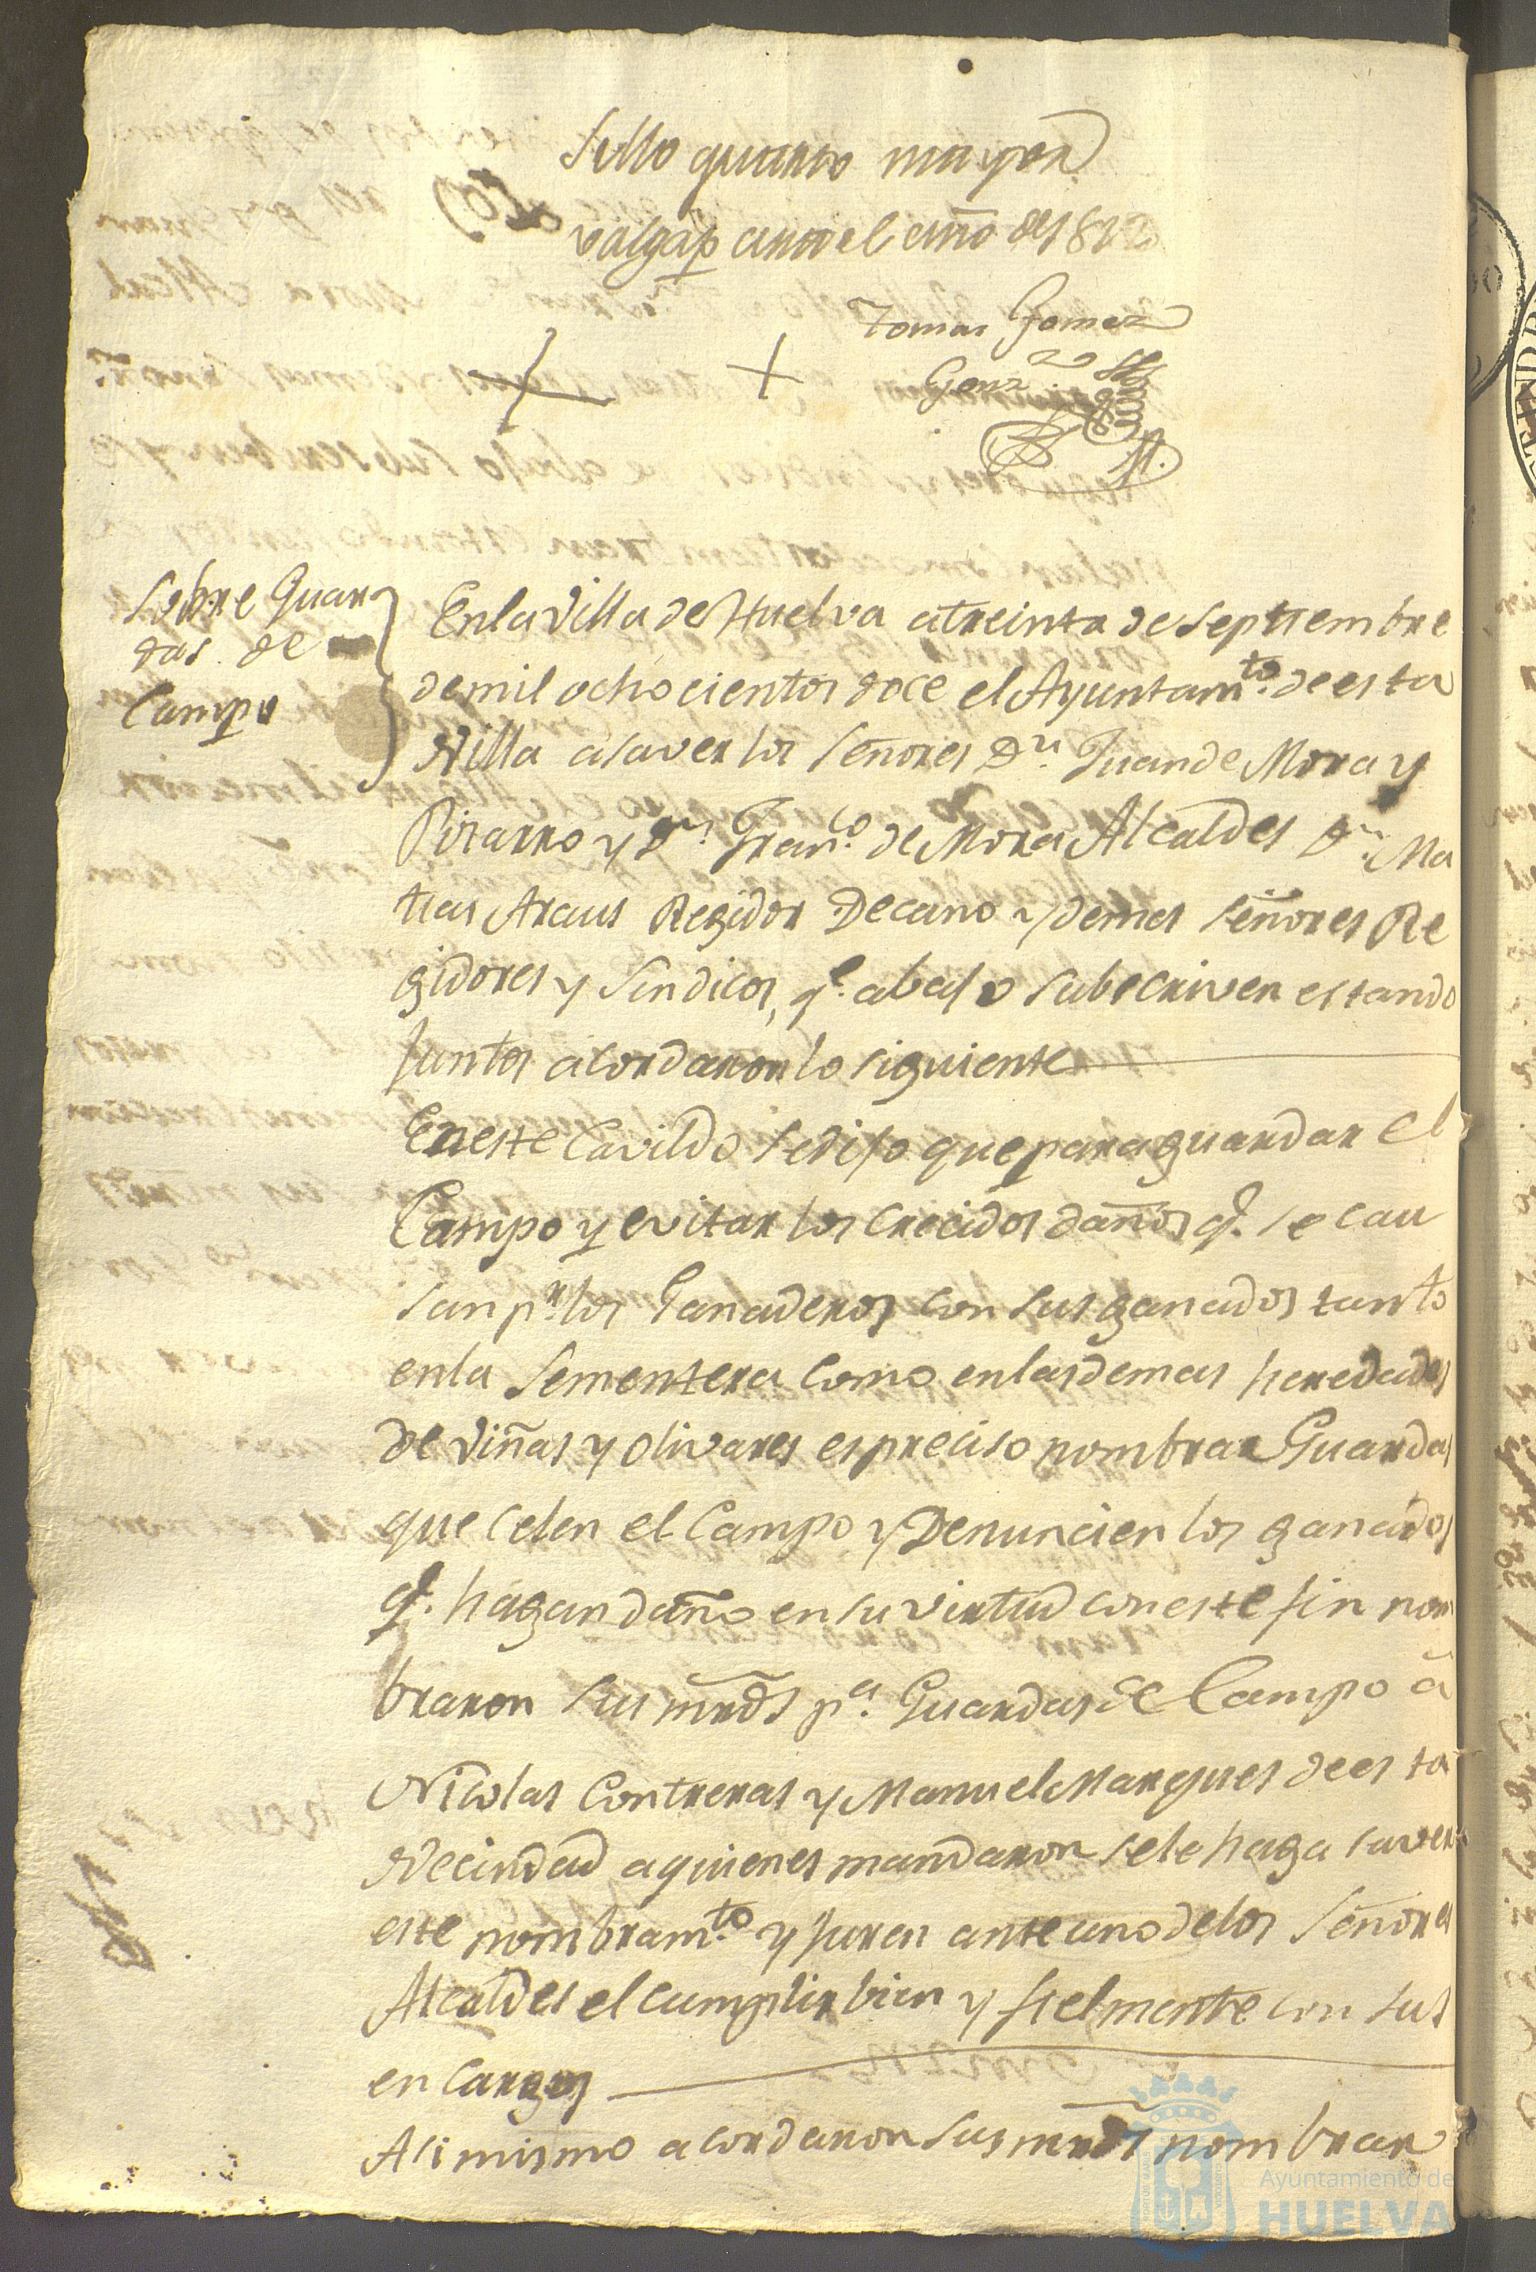 Sello quarto mayor
valga p. ara el año de 1812
Tomas Gomez
Gonz.
Sobre Guar
das de
Campo
En la Villa de Huelva a treinta de Septiembre
de mil ochocientos doce el Ayuntam.to de esta
Villa a saver los Señores D.n Juan de Mora y
Pizarro y D.n Fran.co de Mora Alcaldes D.n Ma
tias Araus Regidor Decano y demas Señores Re
gidores y Sindicos, q.e abajo subscriven estando
Juntos acordaron lo siguiente
En este Cavildo se dijo que para guardar el
Campo y evitar los crecidos daños q.e se cau
san p.r los Ganaderos con sus ganados tanto
en la Sementera como en las demas heredades
de viñas y olivares es preciso nombrar Guardas
que celen el Campo y Denuncien los ganados
q.e hagan daño en su virtud con este fin nom
braron sus mrds p.a Guardas de Campo á
Nicolas Contreras y Manuel Marques de esta
Vecindad a quienes mandaron se le haga saver
este nombram.to y juren ante uno de los Señores
Alcaldes el cumplir bien y fielmente con sus
encargos
Asi mismo acordaron sus mrds nombrar
Ayuntamiento de
HUELVA